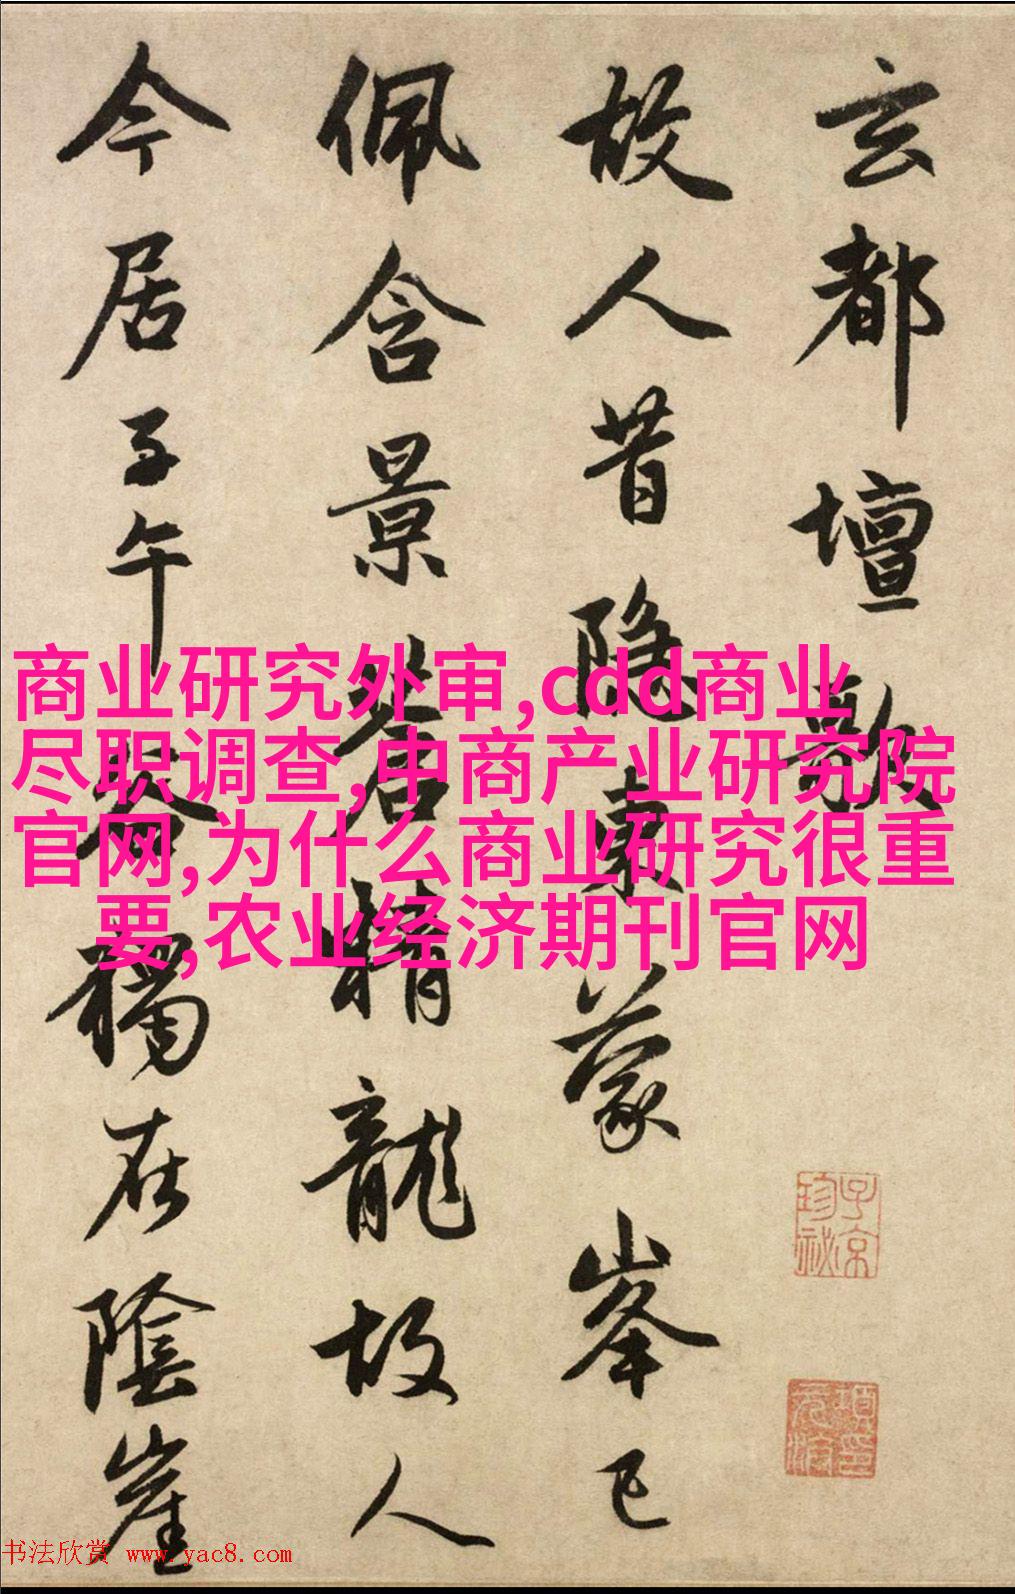 玄都壇歌
故人昔隐東蒙峯已
佩含景蒼精龍故人
今居子午谷獨在陰崖
商业研究外审,cdd商业
尽职调查,中商产业研究院
官网,为什么商业研究很重
要,农业经济期刊官网
子京
珍祕
项元汴印
书法欣赏 www.yac8.com